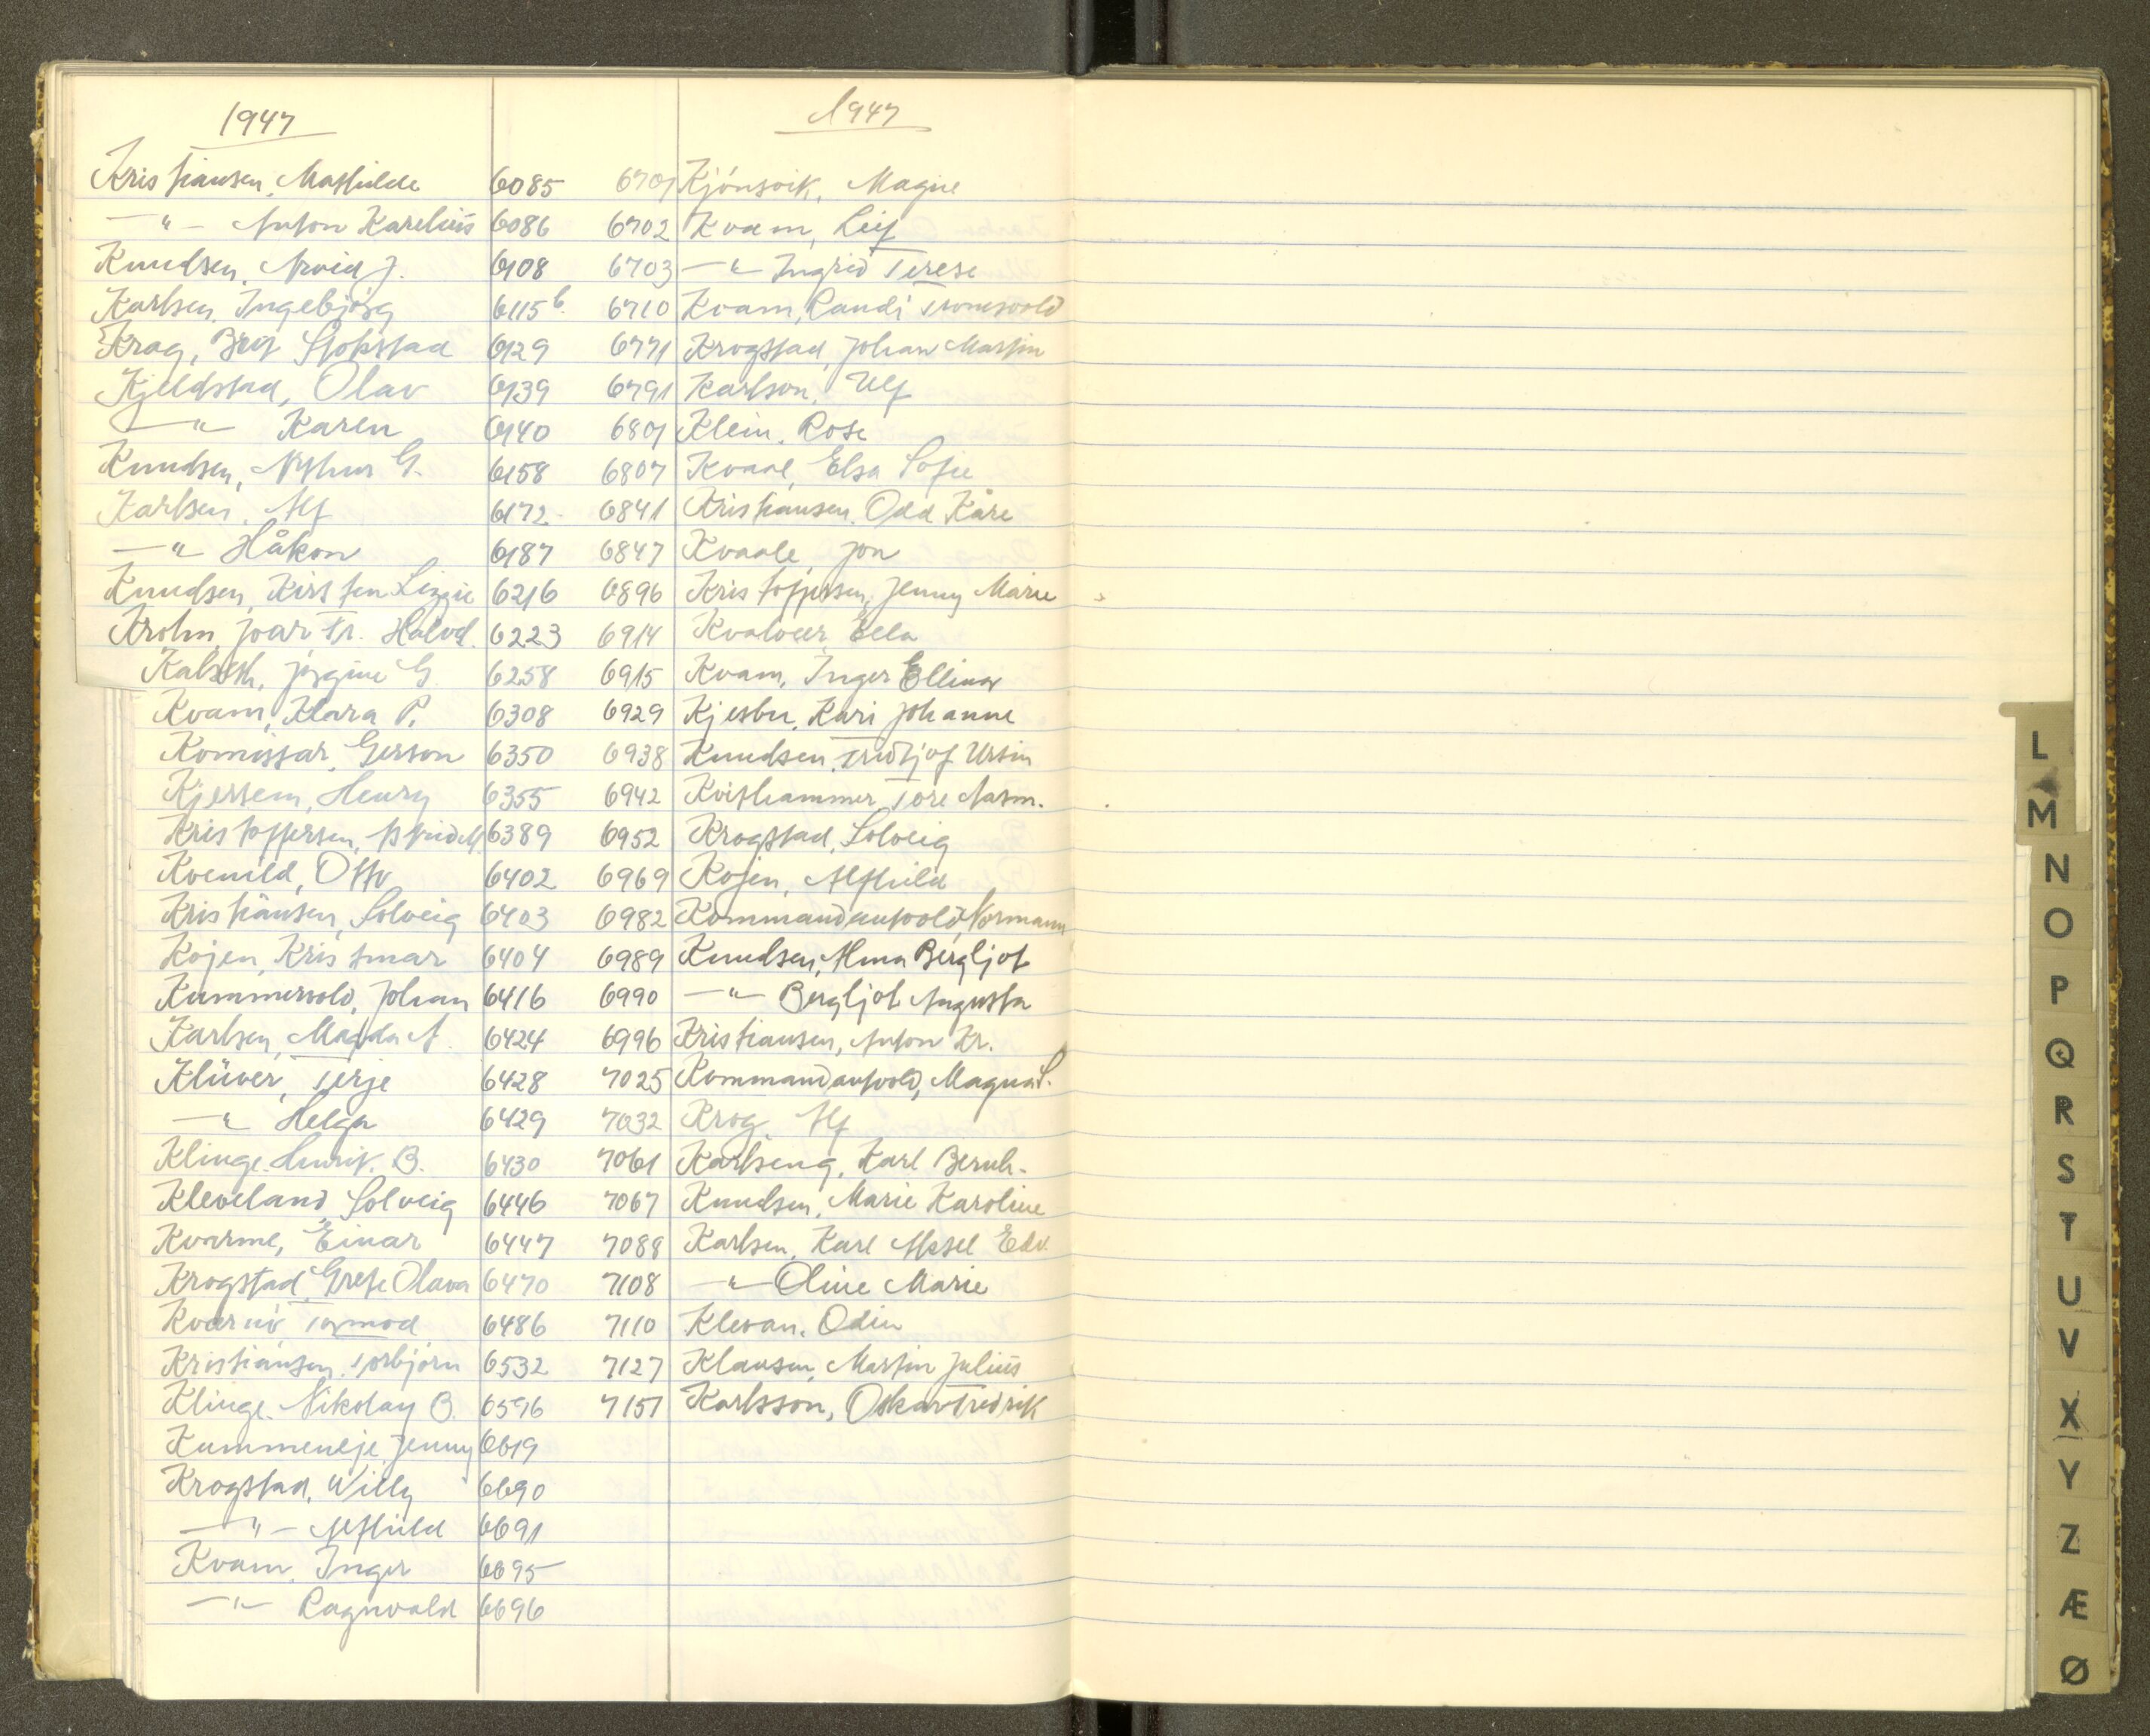 1947
Kristiansen, Mathilde 6085
—"— Anton Karelius 6086
Knudsen, Arvid J. 6108
Karlsen, Ingebjørg 6115b.
Krog, Brit Stokstad 6129
Kjeldstad, Olav 6139
—"— Karen 6140
Knudsen, Arthur G. 6158
Karlsen, Alf 6172
—"— Håkon 6187
Knudsen, Kirsten Lizzie 6216
Krohn, Joar Fr. Halvd. 6223
Kalseth, Jørgine G. 6258
Kvam, Klara P. 6308
Komissar, Gerson 6350
Kjersem, Henry 6355
Kristoffersen, 6389
Kvenild, Otto 6402
Kristiansen, Solveig 6403
Kojen, Kristmar 6404
Kummervold, Johan 6416
Karlsen, Magda A. 6424
Klüver, Terje 6428
—"— Helga 6429
Klinge, Henrik. B. 6430
Kleveland Solveig 6446
Kvarme, Einar 6447
Krogstad, Grete Olava 6470
Tormod 6486
Kristiansen, Torbjørn 6532
Klinge, Nikolay B. 6596
Kummeneje, Jenny 6619
Krogstad, Willy 6690
—"— Alfhild 6691
Kvam, Inger 6695
—"— Ragnvald 6696
1947
6701 Kjønsvik, Magne
6702 Kvam, Leif
6703 —"— Ingrid Terese
6710 Kvam, Randi Tromsvold
6771 Krogstad, Johan Martin
6791 Karlson, Ulf
6801 Klein, Rose
6807 Kvaal, Elsa Sofie
6841 Kristiansen, Odd Kåre
6847 Kvaale, Jon
6896 Kristoffersen, Jenny Marie
6914 Kvalvær, Ella
6915 Kvam, Inger Ellinor
6929 Kjesbu, Kari Johanne
6938 Knudsen, Fridtjof Ursin
6942 Kvithammer, Tore Aasm.
6952 Krogstad, Solveig
6969 Kojen, Alfhild
6982 Kommandantvold, Normann
6989 Knudsen, Alma Bergljot
6990 —"— Bergljot Augusta
6996 Kristiansen, Anton Kr.
7025 Kommandantvold, Magna S.
7032 Krog, Alf
7061 Karlseng, Karl Bernh.
7067 Knudsen, Marie Karoline
7088 Karlsen, Karl Aksel Edv.
7108 —"— Oline Marie
7110 Klevan, Odin
7127 Klausen, Martin Julius
7151 Karlsson, Oskar Fredrik
L
M
N
O
P
Q
R
S
T
U
V
X
Y
Z
Æ
Ø